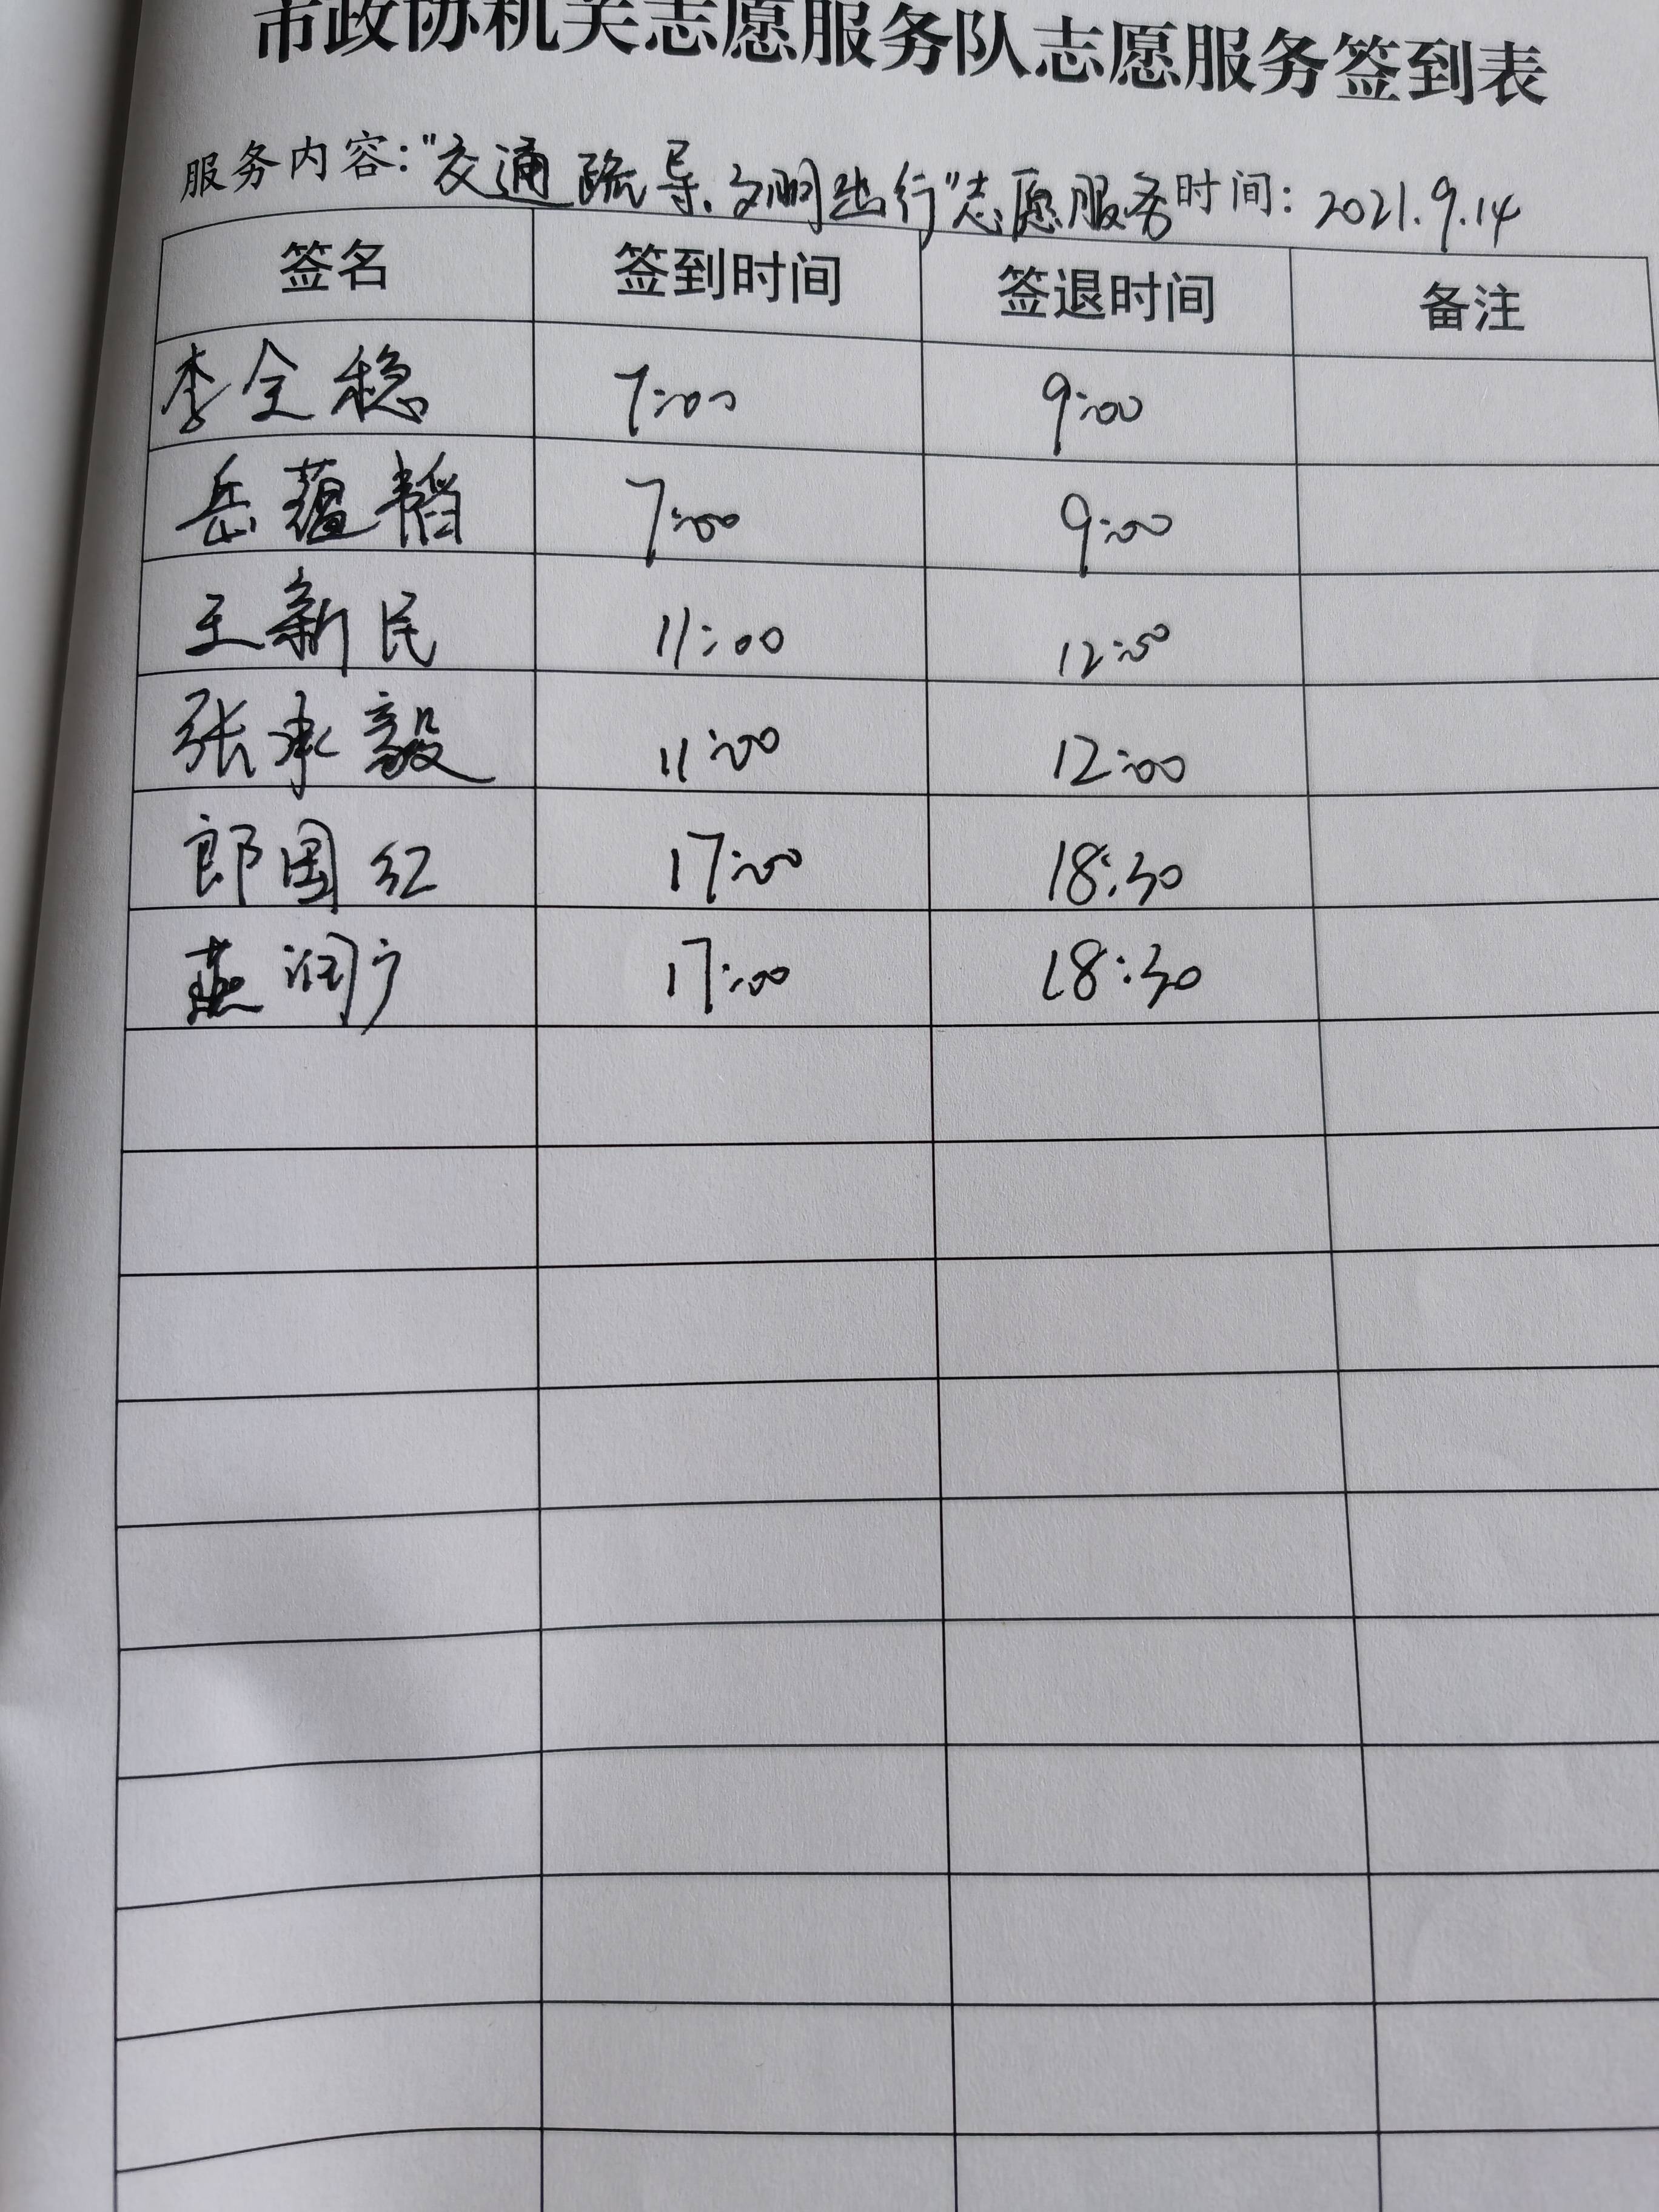 市政协机关志愿服务队志愿服务签到表
服务内容:"交通疏导、文明出行"志愿服务时间: 2021.9.14
签名 签到时间 签退时间 备注
李全稳 7:00 9:00
岳蕴韬 7:00 9:00
王新民 11:00 12:00
张承毅 11:00 12:00
郎国红 17:00 18:30
燕润广 17:00 18:30